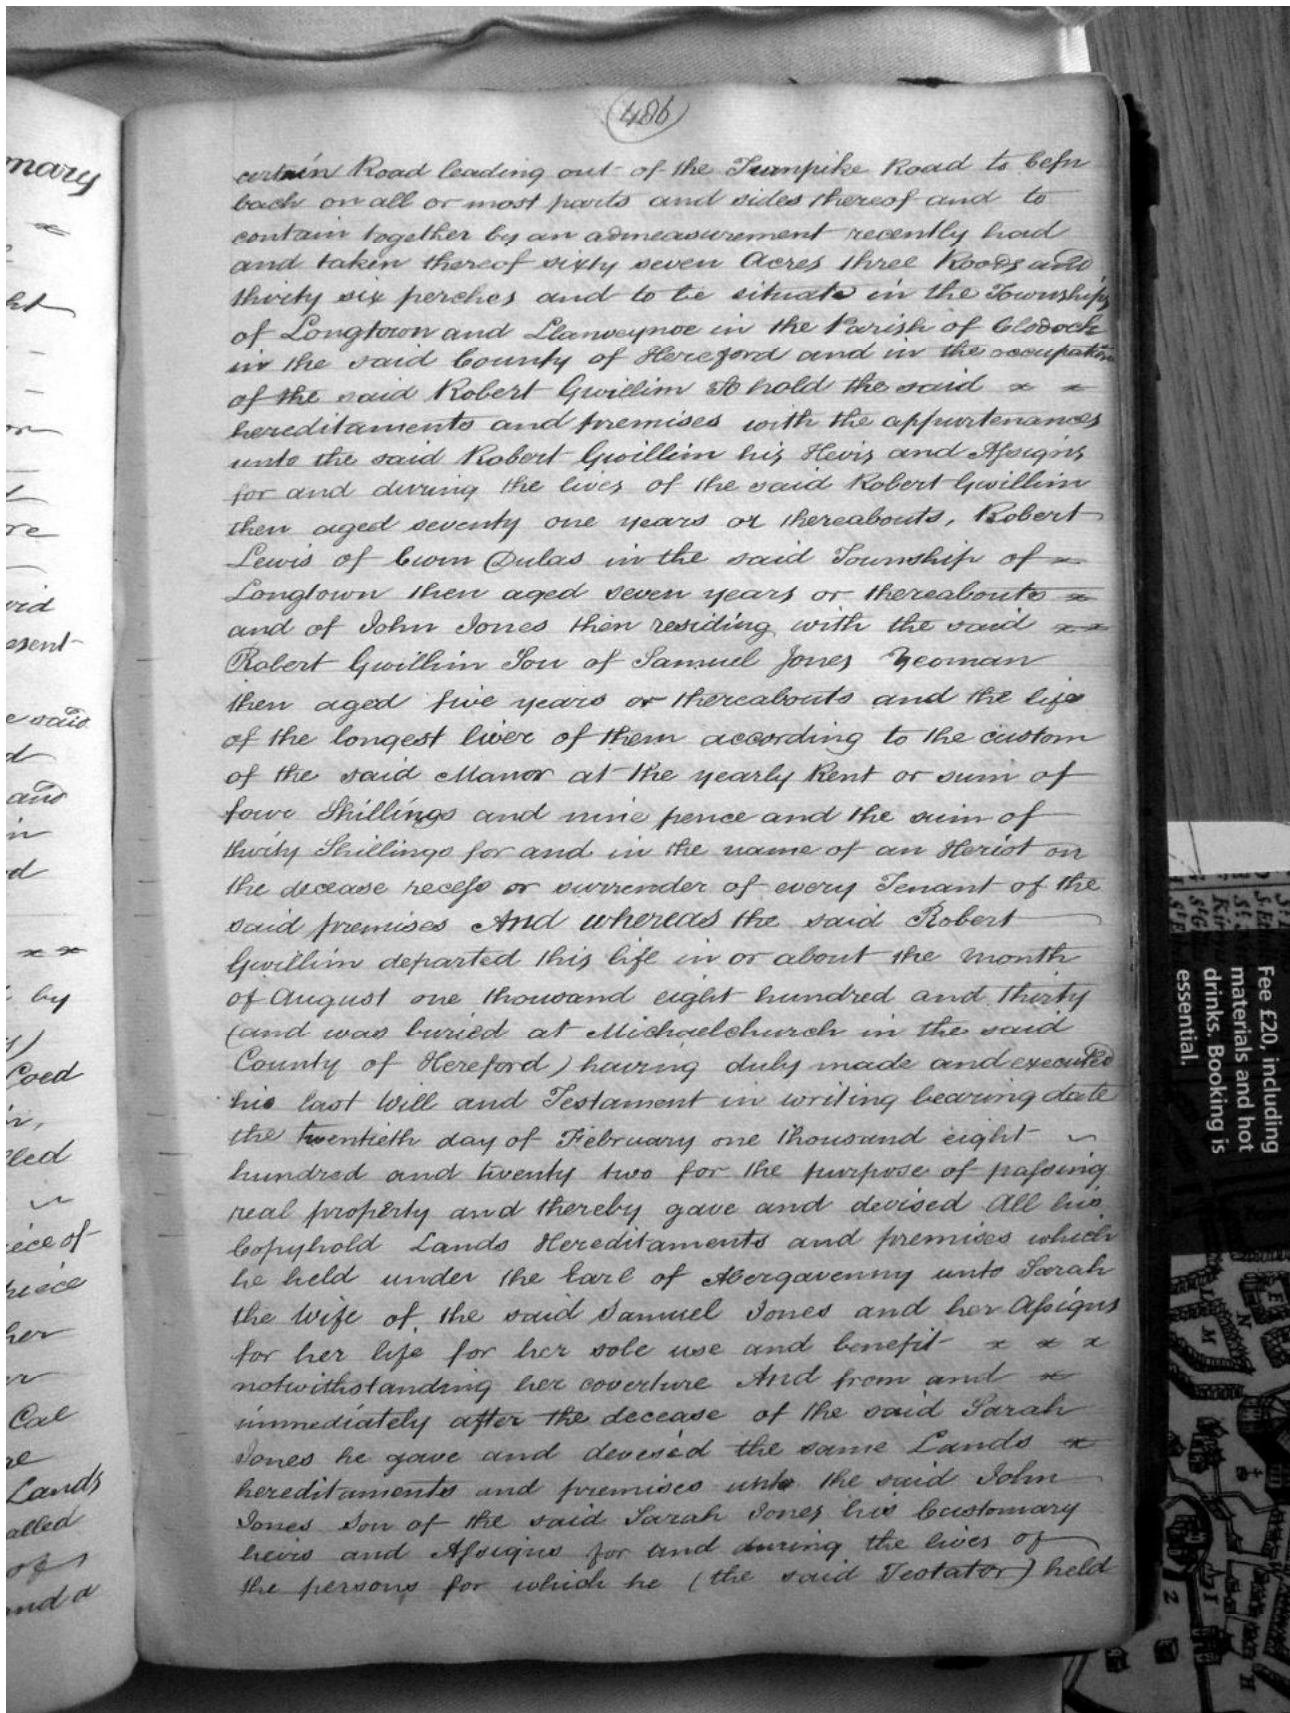 486
certain Road leading out of the Turnpike Road to Cefn
bach on all or most parts and sides thereof and to
contain together by an admeasurement recently had
and taken thereof sixty seven Acres three Roods and
thirty six perches and to be situate in the Townships
of Longtown and Llanveynoe in the Parish of Clodock
in the said County of Hereford and in the occupation
of the said Robert Gwillim To hold the said x x
hereditaments and premises with the appurtenances
unto the said Robert Gwillim his Heirs and Assigns
for and during the lives of the said Robert Gwillim
then aged seventy one years or thereabouts, Robert
Lewis of Cwm Dulas in the said Township of x
Longtown then aged seven years or thereabouts x
and of John Jones then residing with the said x x
Robert Gwillim Son of Samuel Jones Yeoman
then aged five years or thereabouts and the life
of the longest liver of them according to the custom
of the said Manor at the yearly Rent or sum of
four Shillings and nine pence and the sum of
thirty Shillings for and in the name of an Heriot on
the decease recess or surrender of every Tenant of the
said premises And whereas the said Robert
Gwillim departed this life in or about the month
of August one thousand eight hundred and thirty
(and was buried at Michaelchurch in the said
County of Hereford) having duly made and executed
his last Will and Testament in writing bearing date
the twentieth day of February one thousand eight
hundred and twenty two for the purpose of passing
real property and thereby gave and devised All his
Copyhold Lands Hereditaments and premises which
he held under the Earl of Abergavenny unto Sarah
the Wife of the said Samuel Jones and her Assigns
for her life for her sole use and benefit x x x
notwithstanding her coverture And from and x
immediately after the decease of the said Sarah
Jones he gave and devised the same Lands x
hereditaments and premises unto the said John
Jones Son of the said Sarah Jones his Customary
heirs and Assigns for and during the lives of
the persons for which he (the said Testator) held
Fee £20, including
materials and hot
drinks. Booking is
essential.